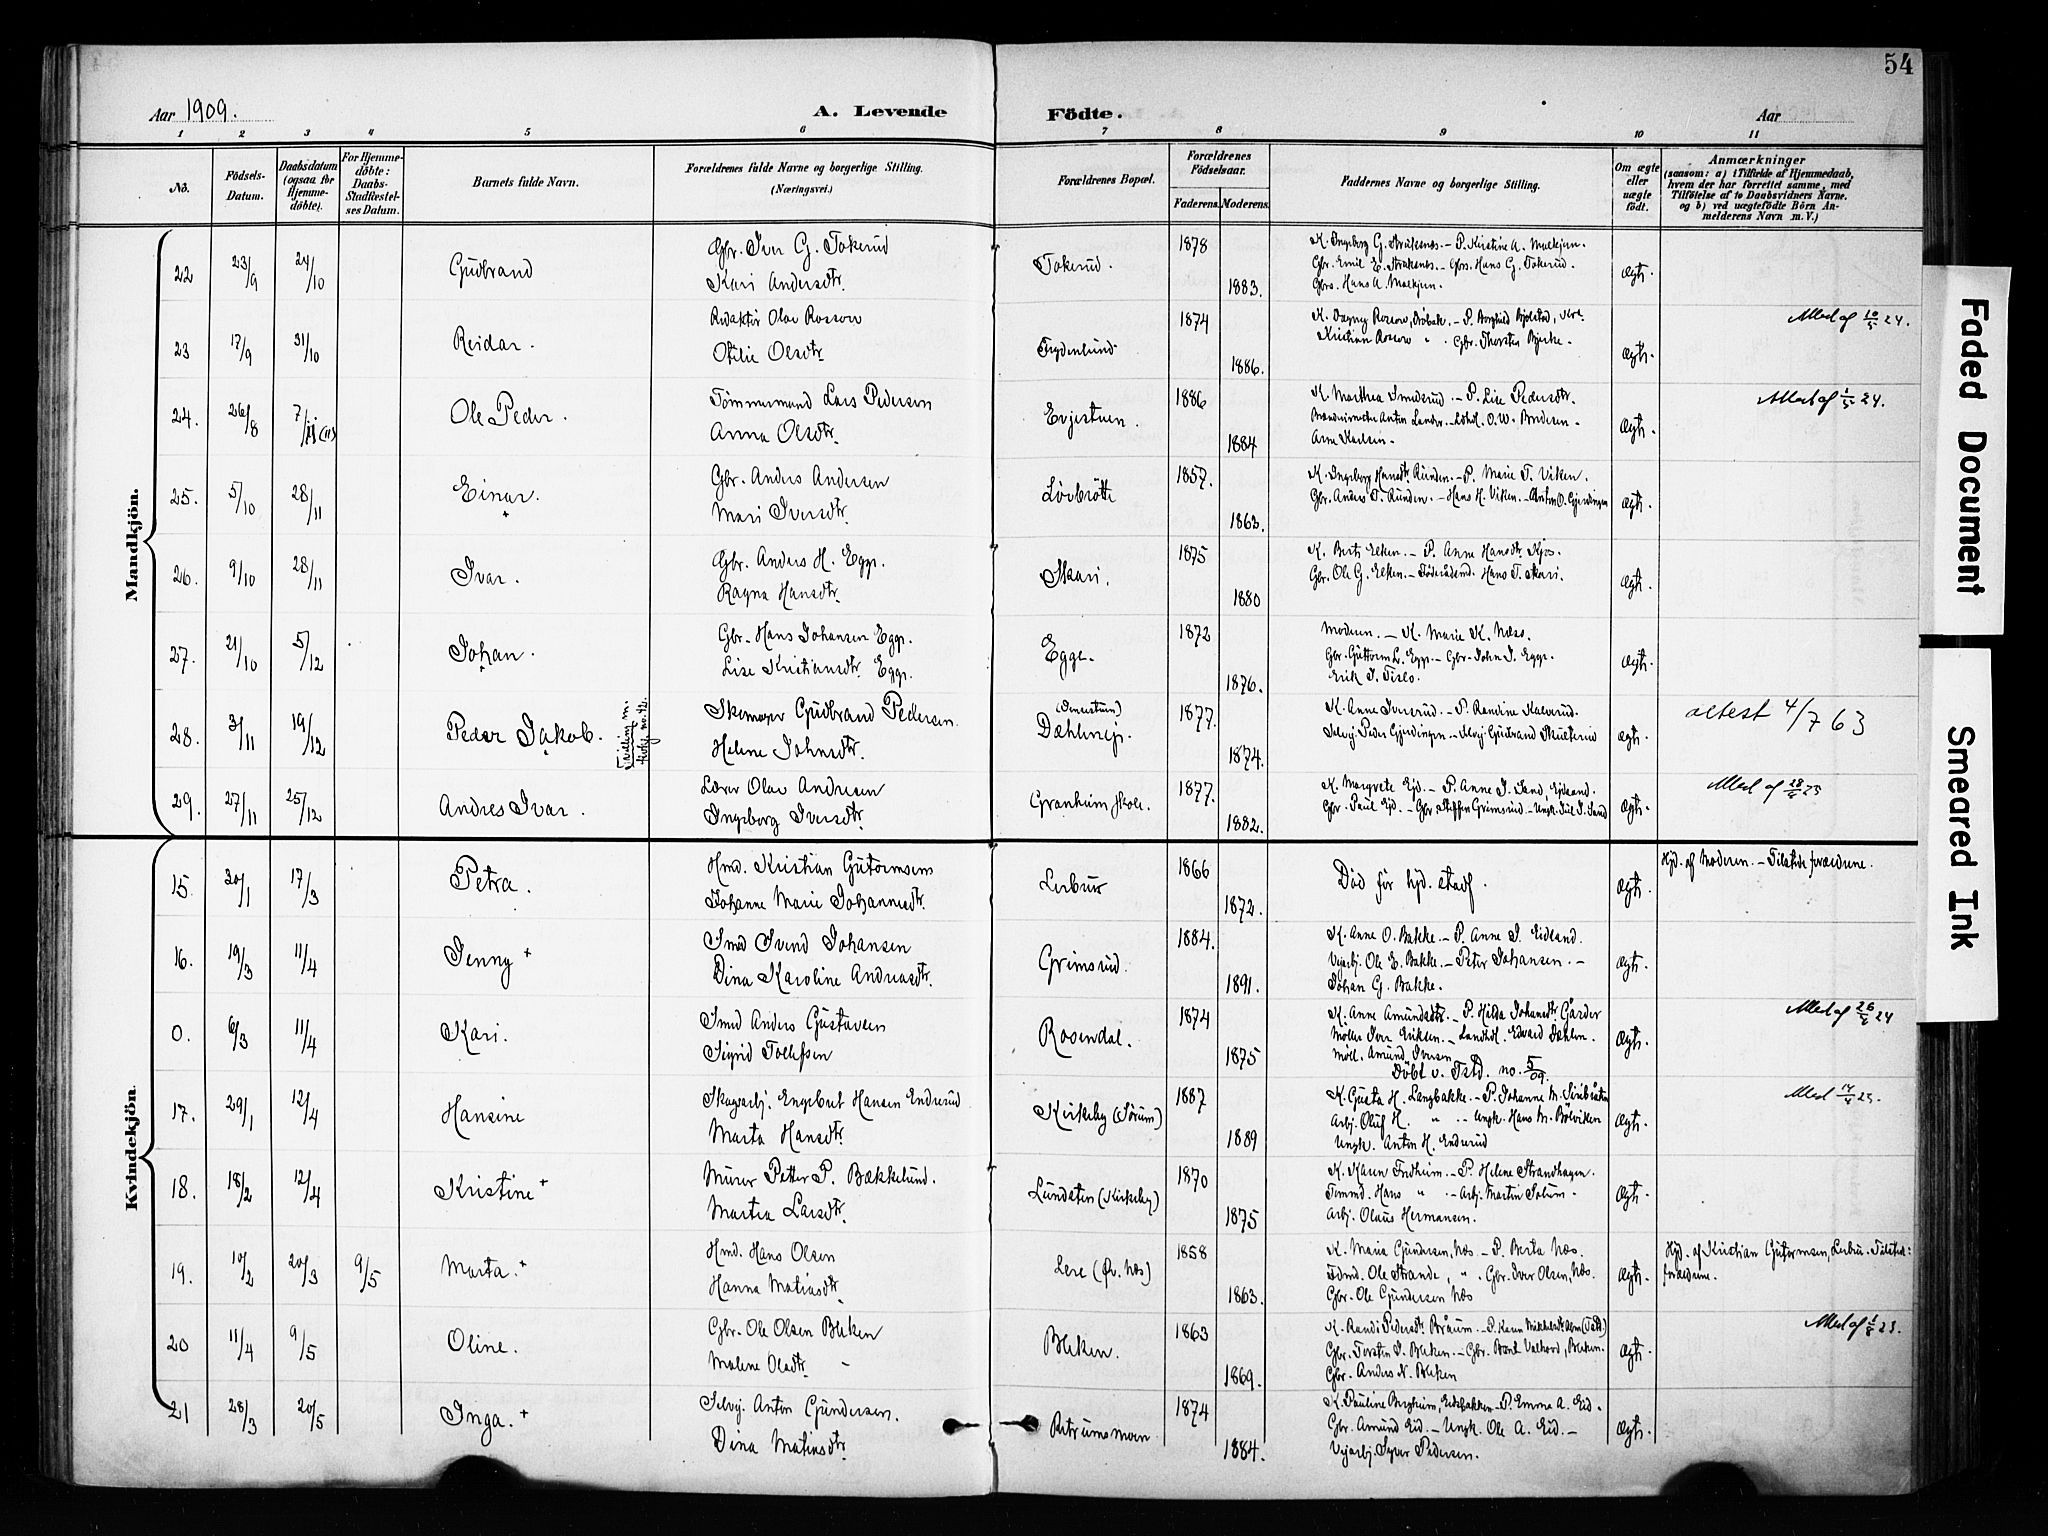 54
Aar 1909.
A. Levende Födte.
Aar
1 2 3 4 5 6 7 8 9 10 11
No.
Födsels-Datum.
Daabsdatum (ogsaa for Hjemme-döbte).
For Hjemme-döbte: Daabs-Stadfæstel-ses Datum.
Barnets fulde Navn.
Forældrenes fulde Navne og borgerlige Stilling.
(Næringsvei.)
Forældrenes Bopæl.
Forældrenes Födselsaar.
Faderens. Moderens.
Faddernes Navne og borgerlige Stilling.
Om ægte eller uægte födt.
Anmærkninger
(saasom: a) i Tilfælde af Hjemmedaab,
hvem der har forrettet samme, med
Tilföielse af to Daabsvidners Navne.
og b) ved uægtefödte Börn An-
melderens Navn m. V.)
Mandkjön.
22 23/9 24/10 Gudbrand
Gbr. Iver G. Tokerud
Kari Andersdtr.
Tokerud. 1878 1883.
Gbr. Emil E. Strøksnes. Hans G. Tokerud.
Ægte.
23 17/9 31/10 Reidar.
Redaktör Olav Rossow
Otilie Olsdtr.
Frydenlund 1874 1886.
Kristian Rossow " . Gbr. Thorsten Bjerke.
Ægte.
Attest af 10/5 24.
24. 26/8 7/11 (11) Ole Peder.
Tömmermand Lars Pedersen
Anna Olsdtr.
Evjestuen. 1886 1884
K. Marthea Smedsrud. P. Lise Pedersdtr.
Arne Karlsen.
Ægte.
Attest af 1/5 24.
25. 5/10 28/11 Einar. +
Gbr. Anders Andersen
Mari Iversdtr.
Lövbråtte 1857. 1863.
K. Ingeborg Hansdtr. Runden. P. Marie T. Viken.
Gbr. Anders T. Runden. Hans H. Viken. Anton O. Gjerdingen
Ægte.
26. 9/10 28/11 Ivar.
Gbr. Anders H. Egge.
Ragna Hansdtr.
Skari. 1875 1880
K. Berte Elken. P. Anne Hansdtr. Kjos.
Gbr. Ole G. Elken. Föderådsmd. Hans T. Skari.
Ægte.
27. 21/10 5/12 Johan.
Gbr. Hans Johansen Egge.
Lise Kristiansdtr. Egge.
Egge. 1872 1876.
Moderen. K. Marie K. Næss.
Gbr. Guttorm L. Egge. Gbr. John J. Egge.
Erik J. Fislo.
Ægte.
28. 3/11 19/12 Peder Jakob.
Tvilling m. kvkj. no. 42.
Skomager Gudbrand Pedersen.
Helene Johnsdtr.
Dæhlineje. 1877. 1874.
K. Anne Iversrud. P. Randine Kalverud.
Selvej. Peder Gjerdingen. Selvej. Gudbrand Skulterud
Ægte.
attest 4/7 63
29. 27/11 25/12 Andres Ivar.
Lærer Olav Andresen
Ingeborg Iversdtr.
Granheim skole. 1877. 1882.
K. Margrete Eid. P. Anne J. Sand, Eidsand.
Gbr. Paul Eid. Gbr. Steffen Grimsrud. Ungk. Juul J. Sand
Ægte.
Attest af 28/5 25
Kvindekjön.
15. 20/1 17/3 Petra.
Hmd. Kristian Gutormsen
Johanne Marie Johannesdtr.
Lerbur 1866 1872.
Död för hjd. stadf.
Ægte.
Hjd. af Moderen. Tilstede forældrene.
16. 19/3 11/4 Jenny +
Smed Svend Johansen
Dina Karoline Andreasdtr.
Grimsrud. 1884. 1891.
K. Anne O. Bakke. P. Anne J. Eidsand.
Vejarbj. Ole E. Bakke. Peter Johansen.
Johan G. Bakke.
Ægte.
0. 6/3 11/4 Kari.
Smed Anders Gustavsen
Sigrid Tollefsen
Rosendal. 1874 1875
K. Anne Amundsdtr. P. Hilda Johansdtr. Gårder
Möller Iver Eriksen. Landhdl. Edvard Dæhlen.
Möll. Amund Iversen
Döbt v. Tstd. no. 5/09.
Ægte.
Attest af 26/2 24
17. 29/1 12/4 Hansine
Skogsarbj. Engebret Hansen Enderud
Marta Hansdtr.
Kirkeby (Sörum) 1887 1889
K. Gusta H. Langbakke. P. Johanne M. Svibråten
Arbj. Oluf H. " Ungk. Hans M. Bölviken
Ungk. Anton H. Enderud
Ægte.
18. 18/2 12/4 Kristine +
Murer Petter P. Bækkelund.
Martea Larsdtr.
Lundsten (Kirkeby) 1870 1875
K. Karen Fredheim. P. Helene Strandhagen.
Tömmd. Hans " Arbj. Martin Solum.
Arbj. Olaus Hermansen.
Ægte.
19. 10/2 20/3 9/5 Marta. +
Hmd. Hans Olsen
Hanna Matiasdtr.
Lere (Öv. Næs) 1858 1863.
K. Maria Gundersen, Næs. P. Berta Næs.
Fdmd. Ole Strande, " . Gbr. Iver Olsen, Næs.
Gbr. Ole Gundersen Næs
Ægte.
Hjd. af Kristian Gutormsen, Lerbur. Tilsted: forældrene.
20 11/4 9/5 Oline.
Gbr. Ole Olsen Bleken
Malene Olsdtr.
Bleken. 1863 1869.
Gbr. Torsten J. Bleken. Gbr. Bent Valhovd, Bleken.
Gbr. Anders N. Bleken
Ægte.
Attest af 1/8 23.
21 28/3 20/5 Inga. +
Selvej. Anton Gundersen.
Dina Matiasdtr.
Retrumsmoen 1874 1884.
K. Pauline Bergheim, Eidsbakken. P. Emma A. Eid.
Gbr. Amund Eid. Ungk. Ole A. Eid.
Vejarbj. Syver Pedersen.
Ægte.
Faded Document
Smeared Ink